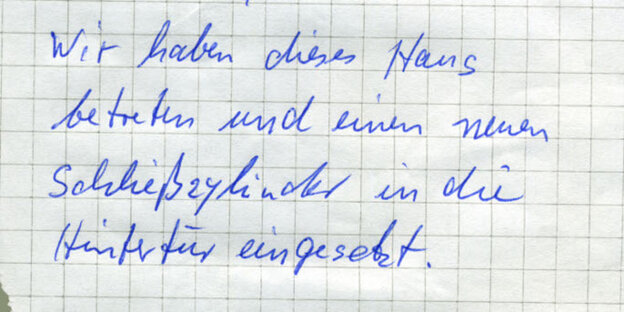 Wir haben dieses Haus
betreten und einen neuen
Schließzylinder in die
Hintertür eingesetzt.